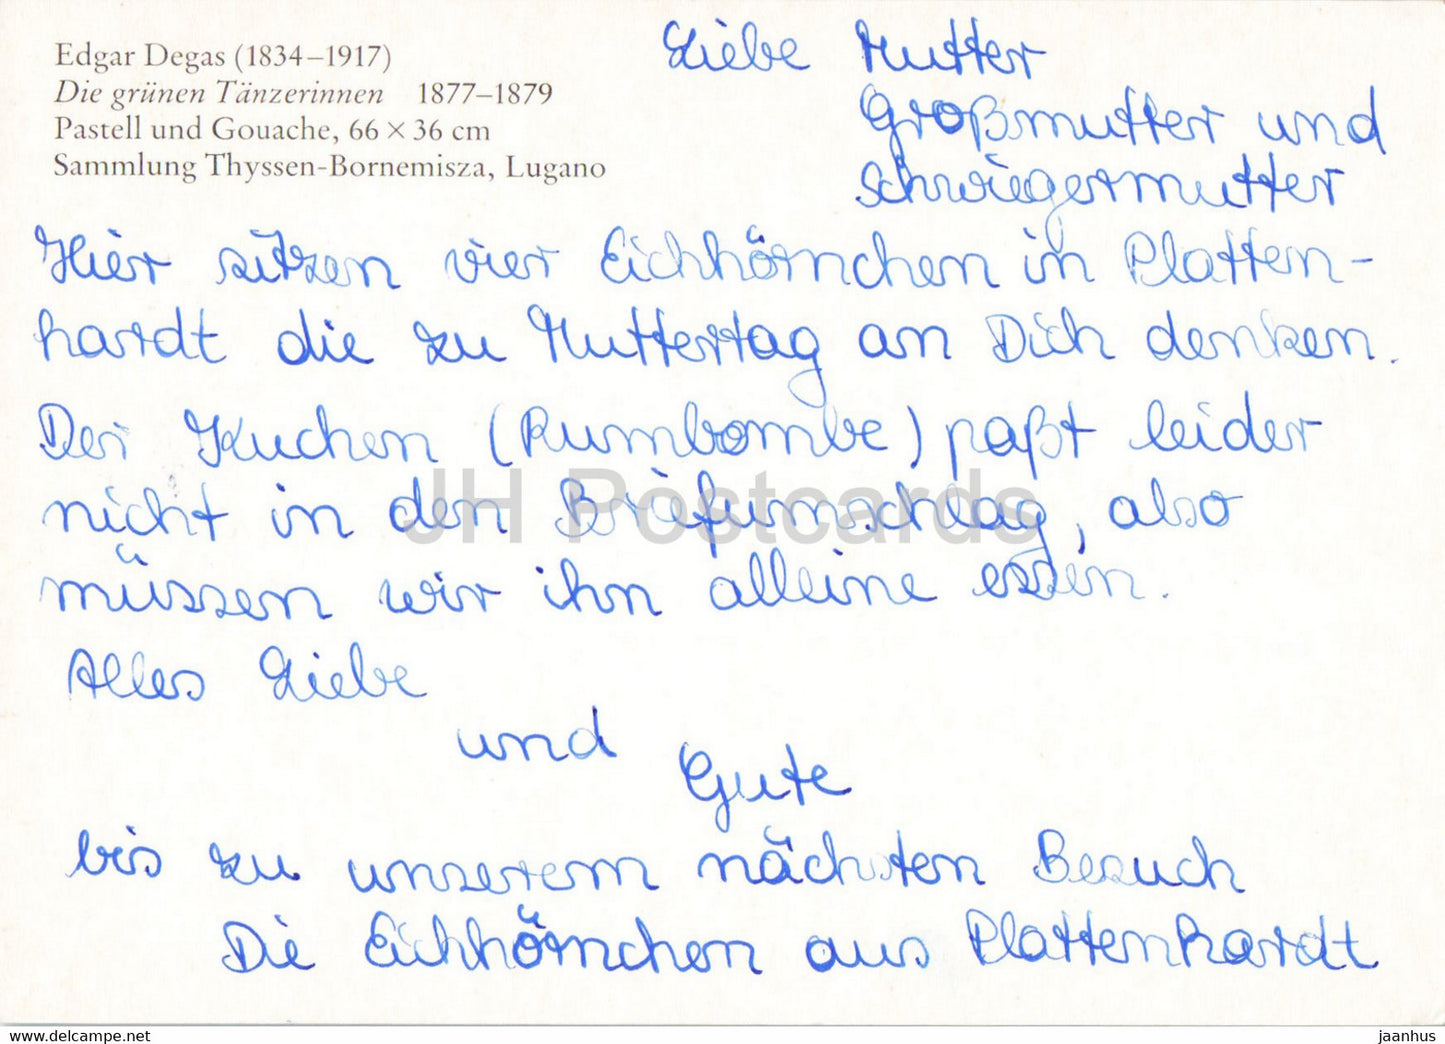 Edgar Degas (1834–1917)
Die grünen Tänzerinnen 1877–1879
Pastell und Gouache, 66 × 36 cm
Sammlung Thyssen-Bornemisza, Lugano
Liebe Mutter
Großmutter und
Schwiegermutter
Hier sitzen vier Eichhörnchen in Platten-
hardt die zu Muttertag an Dich denken.
Der Kuchen (Rumbombe) paßt leider
nicht in den Briefumschlag, also
müssen wir ihn alleine essen.
Alles Liebe
und Gute
bis zu unserem nächsten Besuch
Die Eichhörnchen aus Plattenhardt
JH Postcards
www.delcampe.net
jaanhus